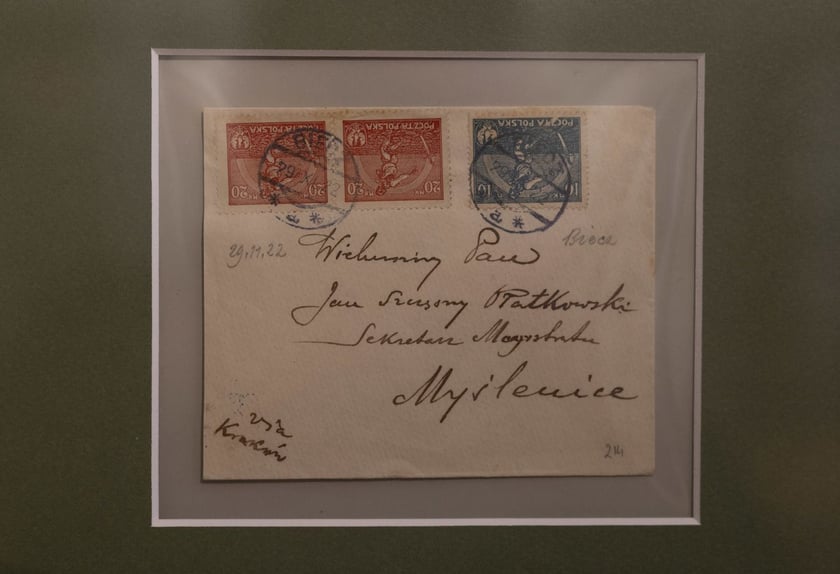 POCZTA POLSKA
20 MK 20
POCZTA POLSKA
20 MK 20
POCZTA POLSKA
10 MK 10
BIECZ
29.11.22
Biecz
Wielmożny Pan
Jan Szczęsny Płatkowski
Sekretarz Magistratu
Myślenice
via
Kraków
214